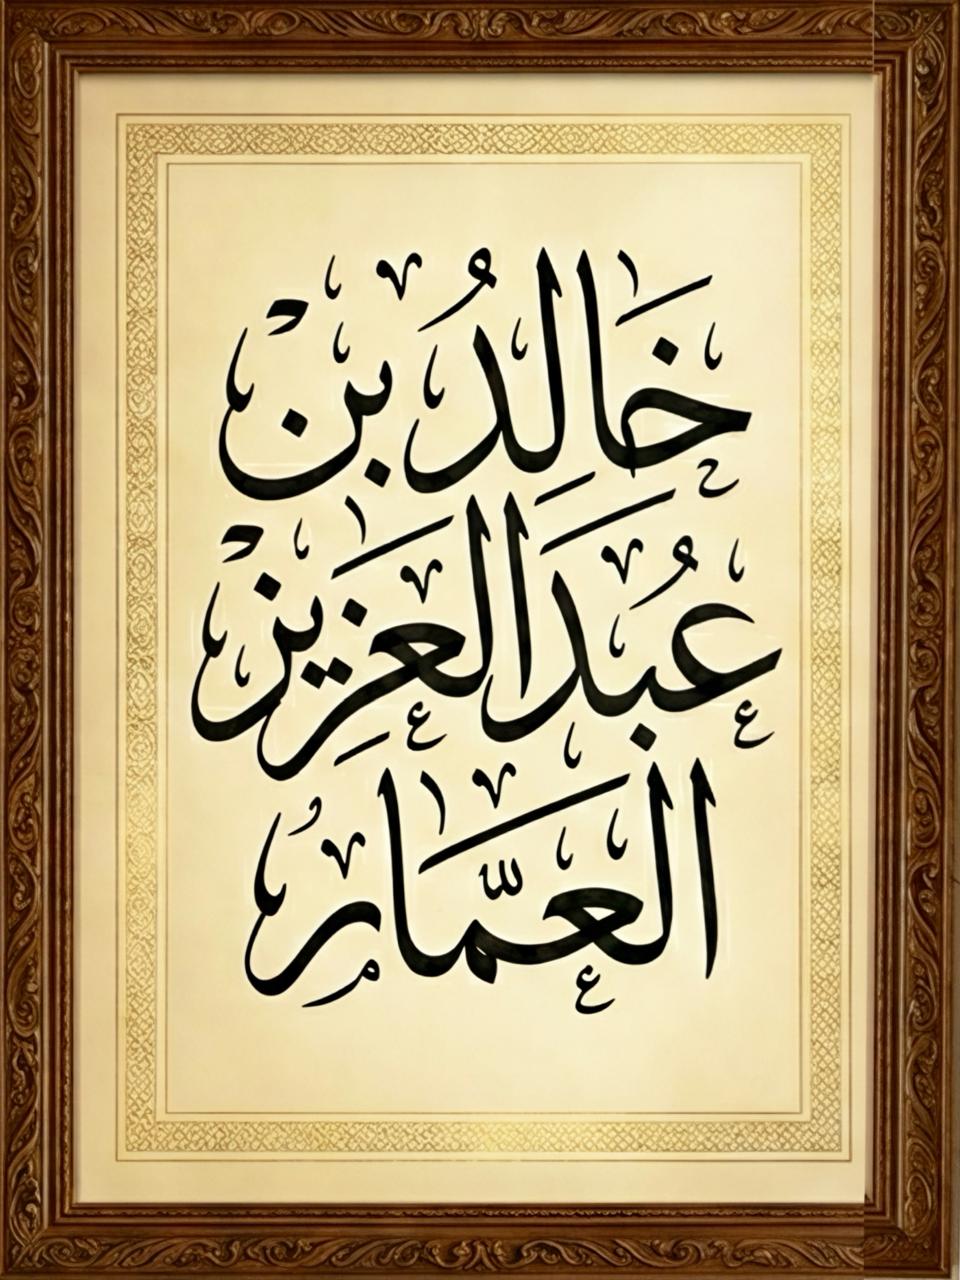 خَالِدُ بْن
عَبُدَ الْعَزِيزْ
العَمَّارُ